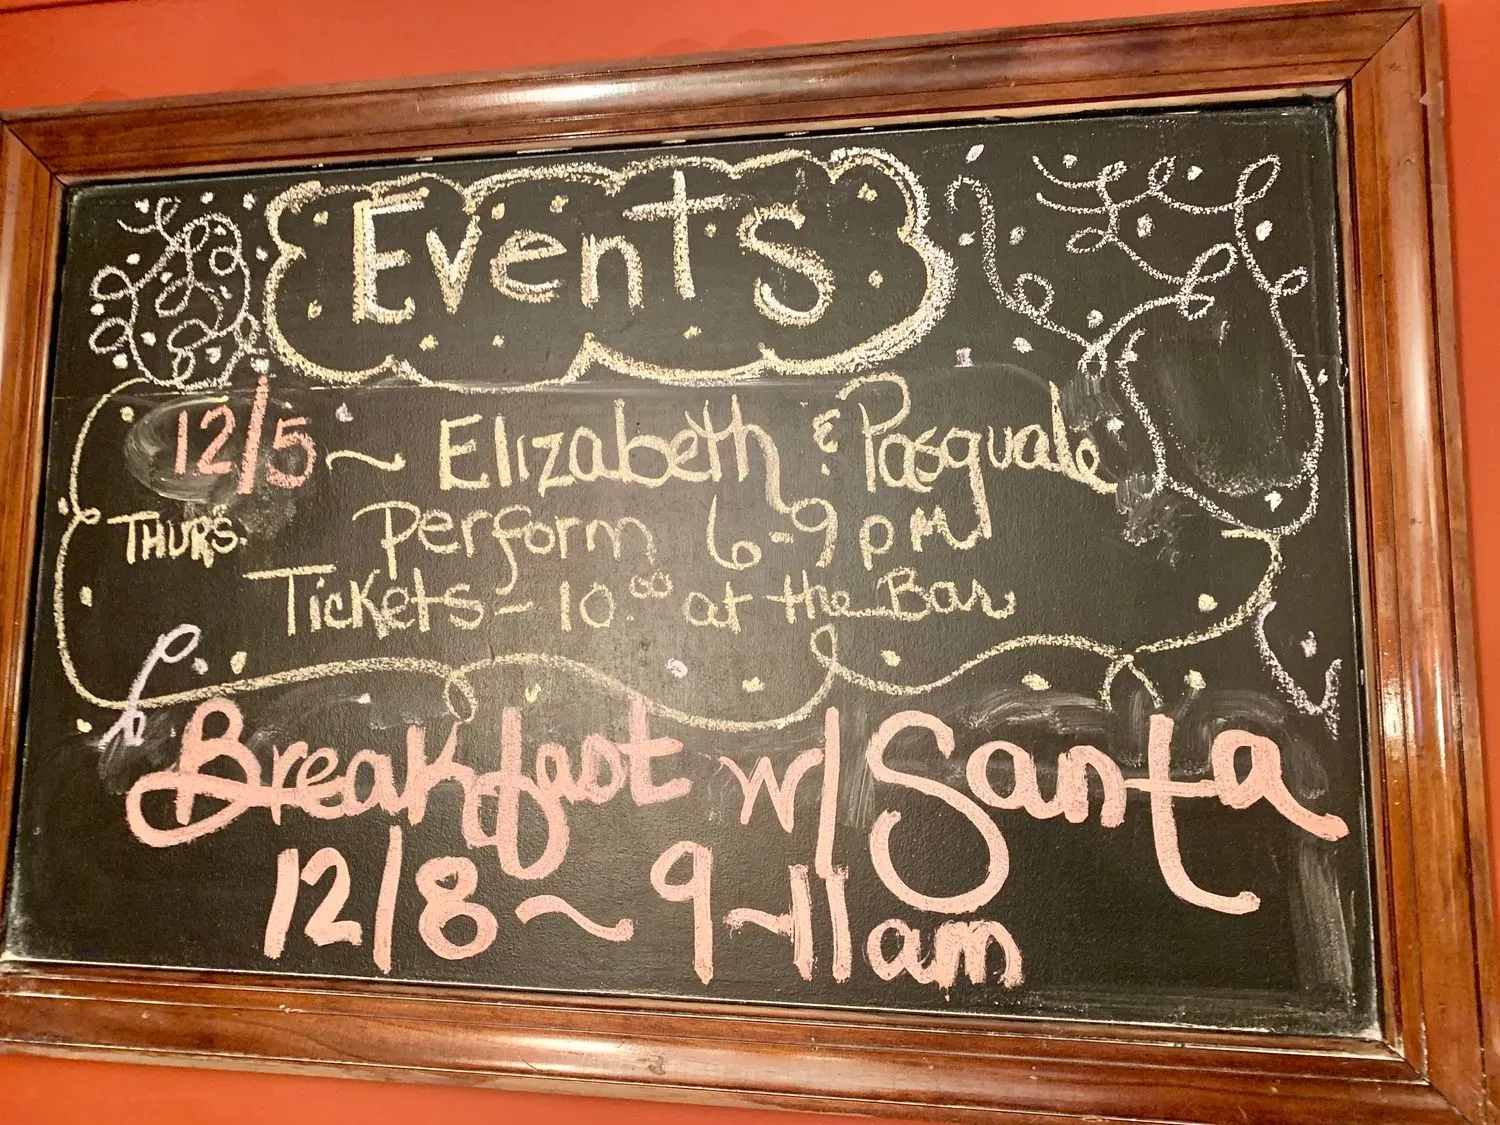 Events
12/5 ~ Elizabeth & Pasquale
THURS. Perform 6-9 pm
Tickets - 10.00 at the Bar
Breakfast w/ Santa
12/8 ~ 9-11am